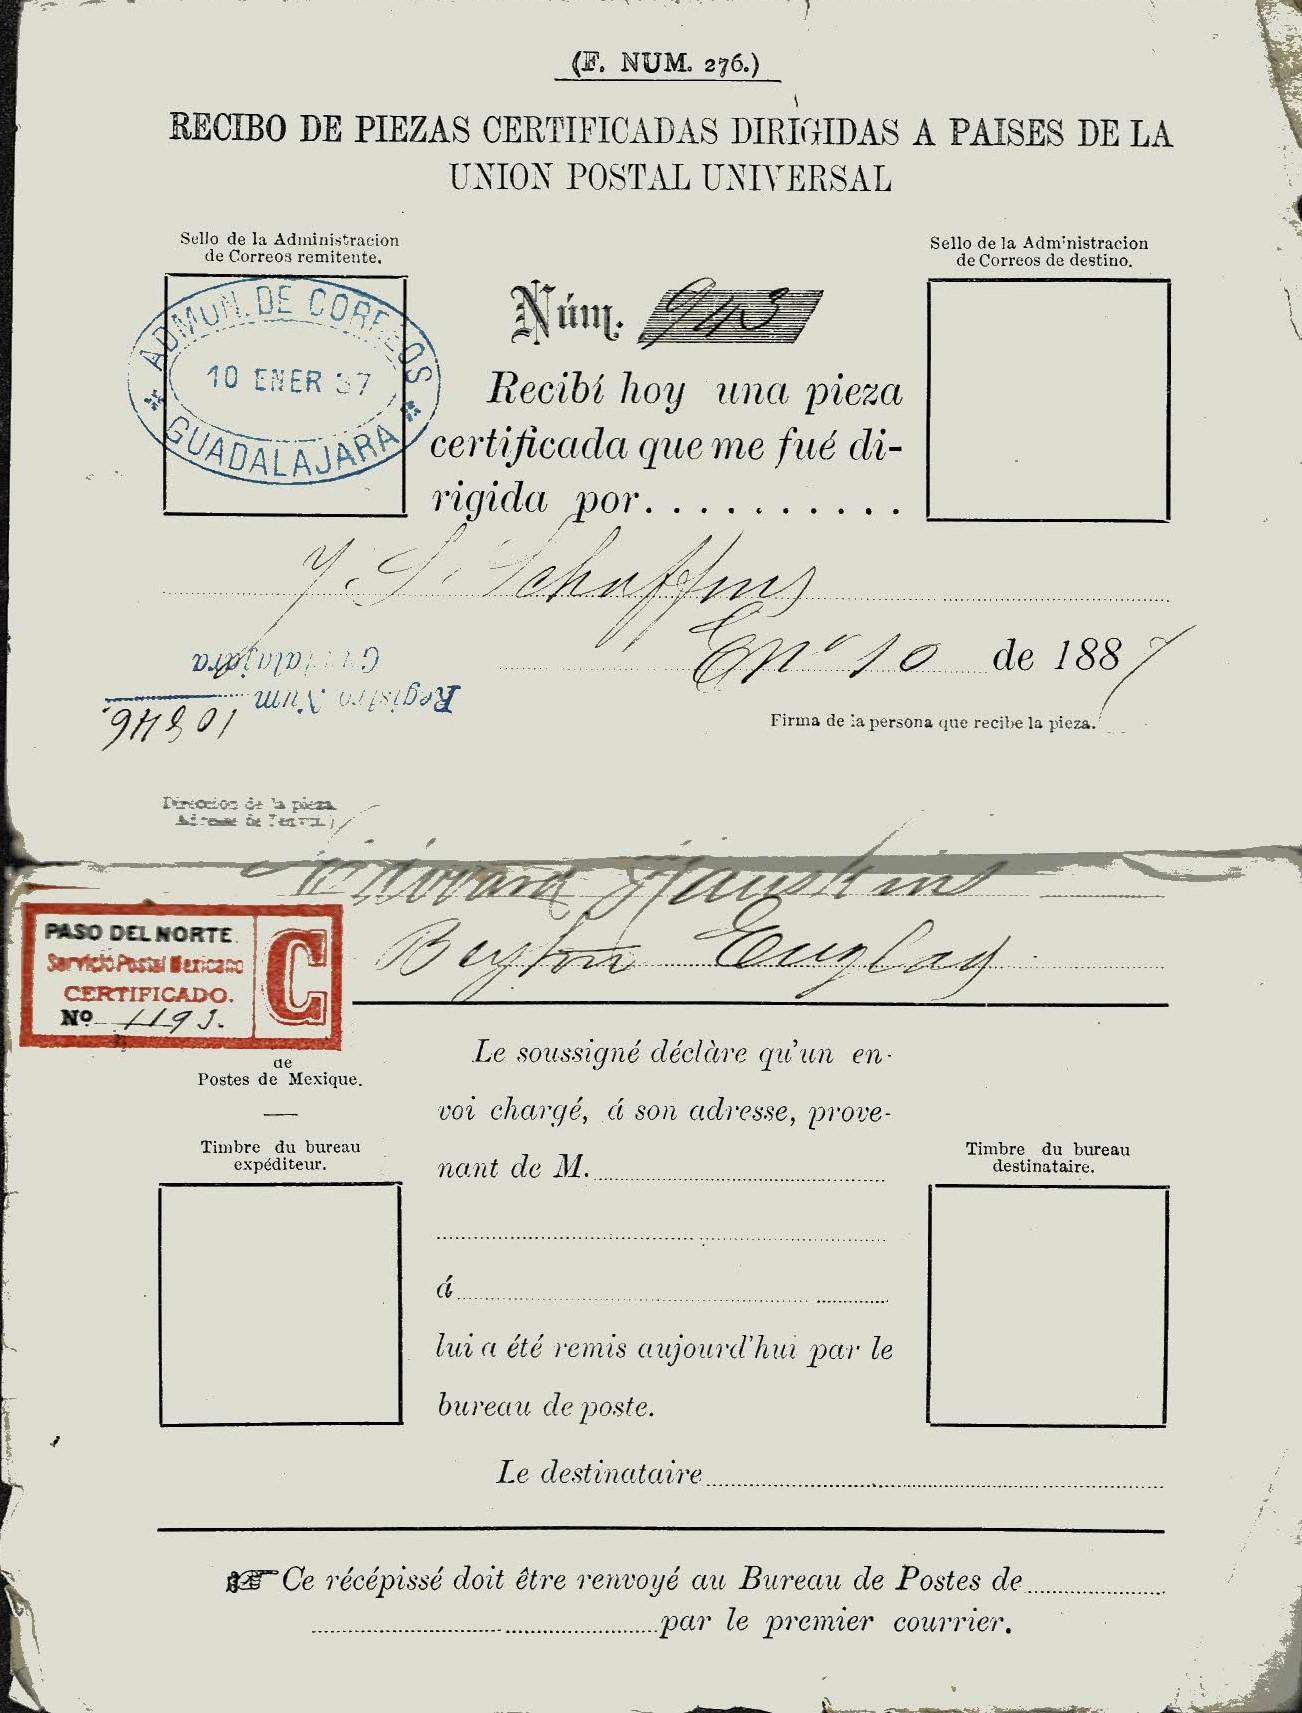 (F. NUM. 276.)
RECIBO DE PIEZAS CERTIFICADAS DIRIGIDAS A PAISES DE LA
UNION POSTAL UNIVERSAL
Sello de la Administracion
de Correos remitente.
Sello de la Administracion
de Correos de destino.
ADMUN. DE CORREOS
10 ENER 87
GUADALAJARA
Núm. 943
Recibí hoy una pieza
certificada que me fué di-
rigida por..........
Y. S. 
Enº 10 de 1887
Guadalajara
Registro Num
10846.
Firma de la persona que recibe la pieza.
Direccion de la pieza
Adresse de l'envoi
Edouard
England
PASO DEL NORTE.
Servicio Postal Mexicano
CERTIFICADO.
Nº 1193.
C
de
Postes de Mexique.
Le soussigné déclàre qu'un en-
voi chargé, á son adresse, prove-
nant de M.
á
lui a été remis aujourd'hui par le
bureau de poste.
Timbre du bureau
expéditeur.
Timbre du bureau
destinataire.
Le destinataire
Ce récépissé doit être renvoyé au Bureau de Postes de
par le premier courrier.